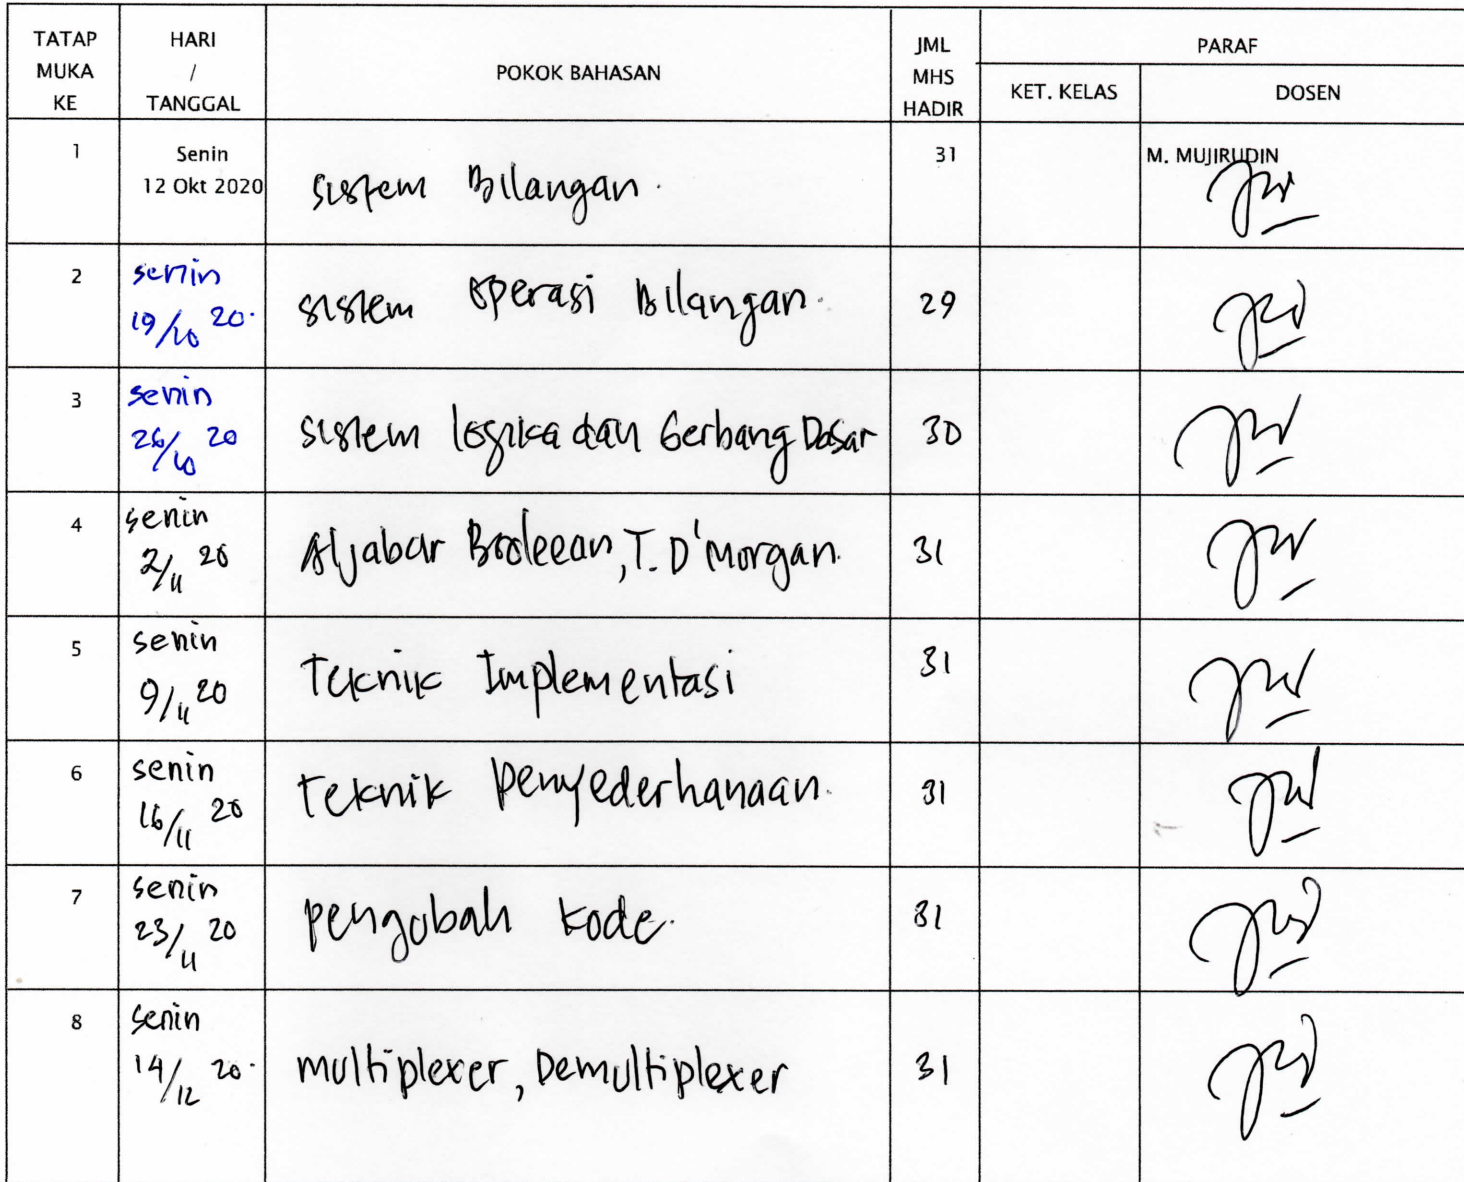 TATAP MUKA KE
HARI / TANGGAL
POKOK BAHASAN
JML MHS HADIR
PARAF
KET. KELAS
DOSEN
1 Senin 12 Okt 2020 sistem Bilangan. 31 M. MUJIRUDIN
2 senin 19/10 20. sistem operasi Bilangan. 29
3 senin 26/10 20 sistem logika dan Gerbang Dasar 30
4 senin 2/11 20 Aljabar Booleean, T. D'Morgan. 31
5 senin 9/11 20 Teknik Implementasi 31
6 senin 16/11 20 Teknik Penyederhanaan. 31
7 senin 23/11 20 pengubah kode. 31
8 senin 14/12 20. multiplexer, Demultiplexer 31